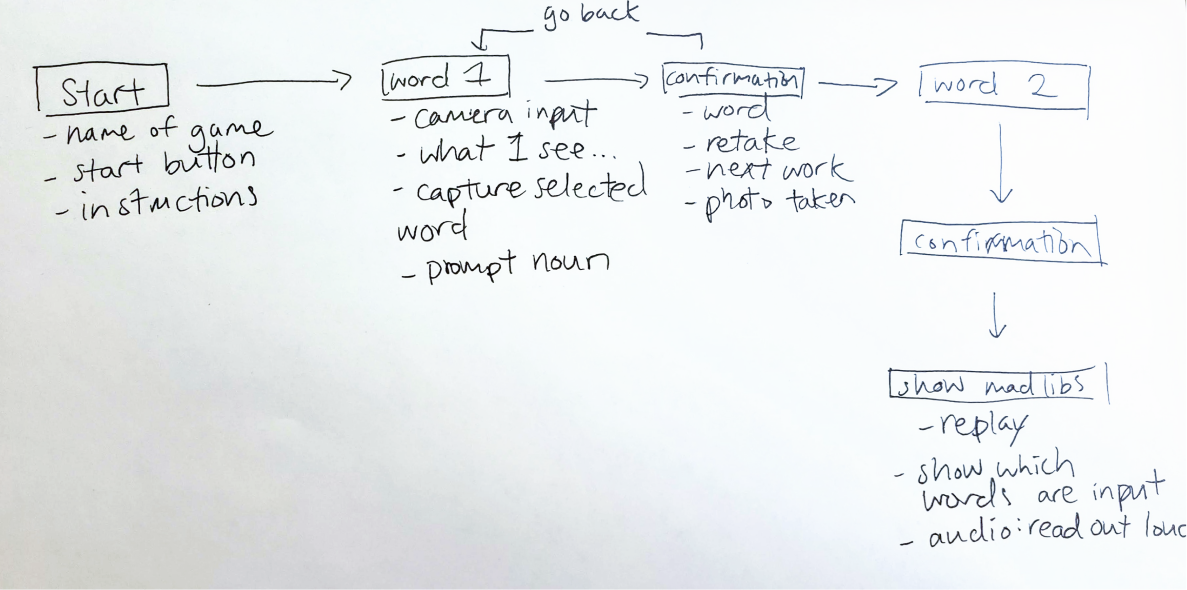 go back
Start
- name of game
- start button
- instructions
word 1
- camera input
- what I see...
- capture selected
word
- prompt noun
confirmation
- word
- retake
- next work
- photo taken
word 2
confirmation
show madlibs
- replay
- show which
words are input
- audio: read out loud